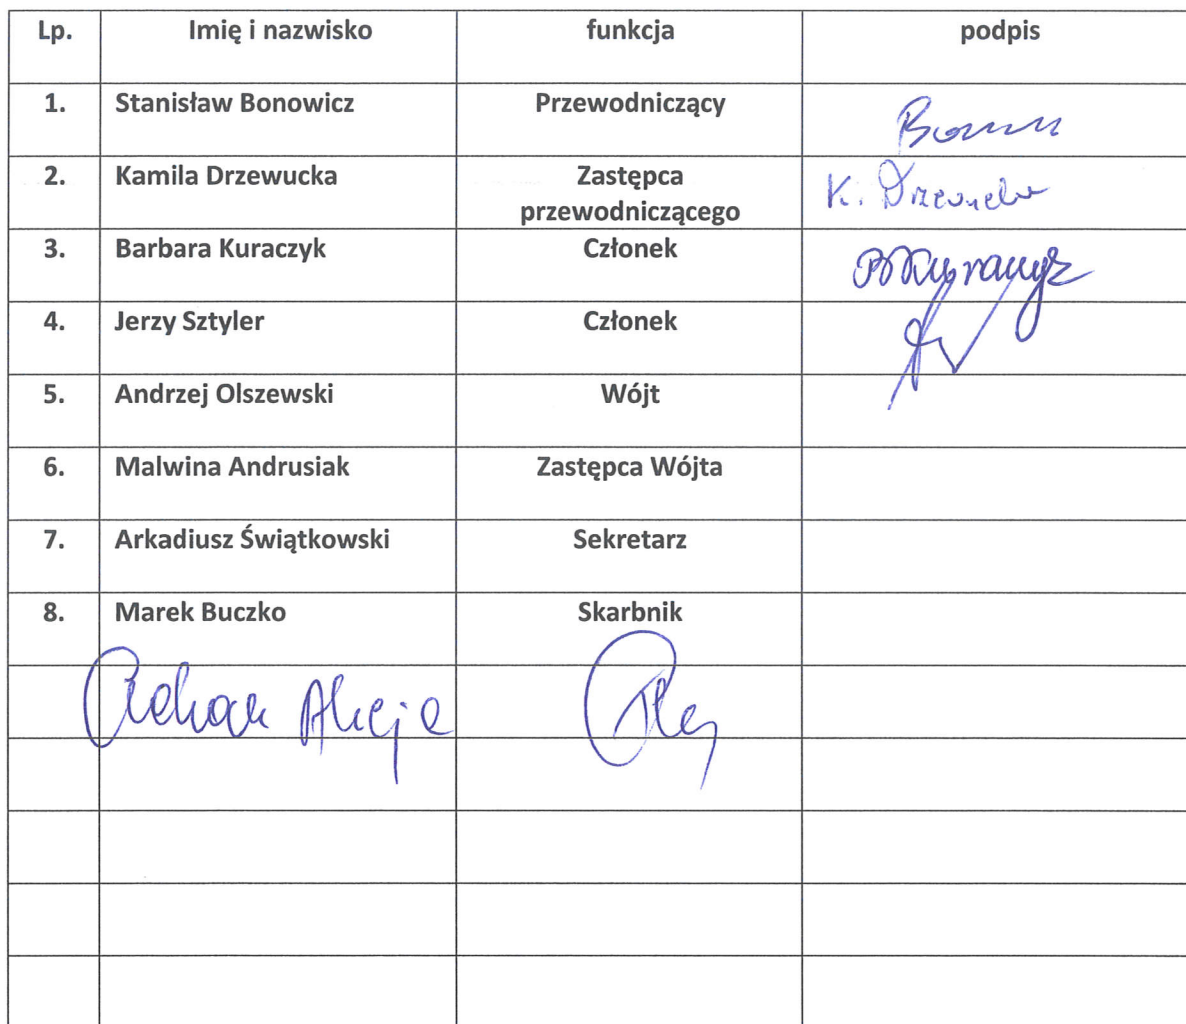 Lp. Imię i nazwisko funkcja podpis
1. Stanisław Bonowicz Przewodniczący
2. Kamila Drzewucka Zastępca
przewodniczącego K.
3. Barbara Kuraczyk Członek
4. Jerzy Sztyler Członek
5. Andrzej Olszewski Wójt
6. Malwina Andrusiak Zastępca Wójta
7. Arkadiusz Świątkowski Sekretarz
8. Marek Buczko Skarbnik
Alicja